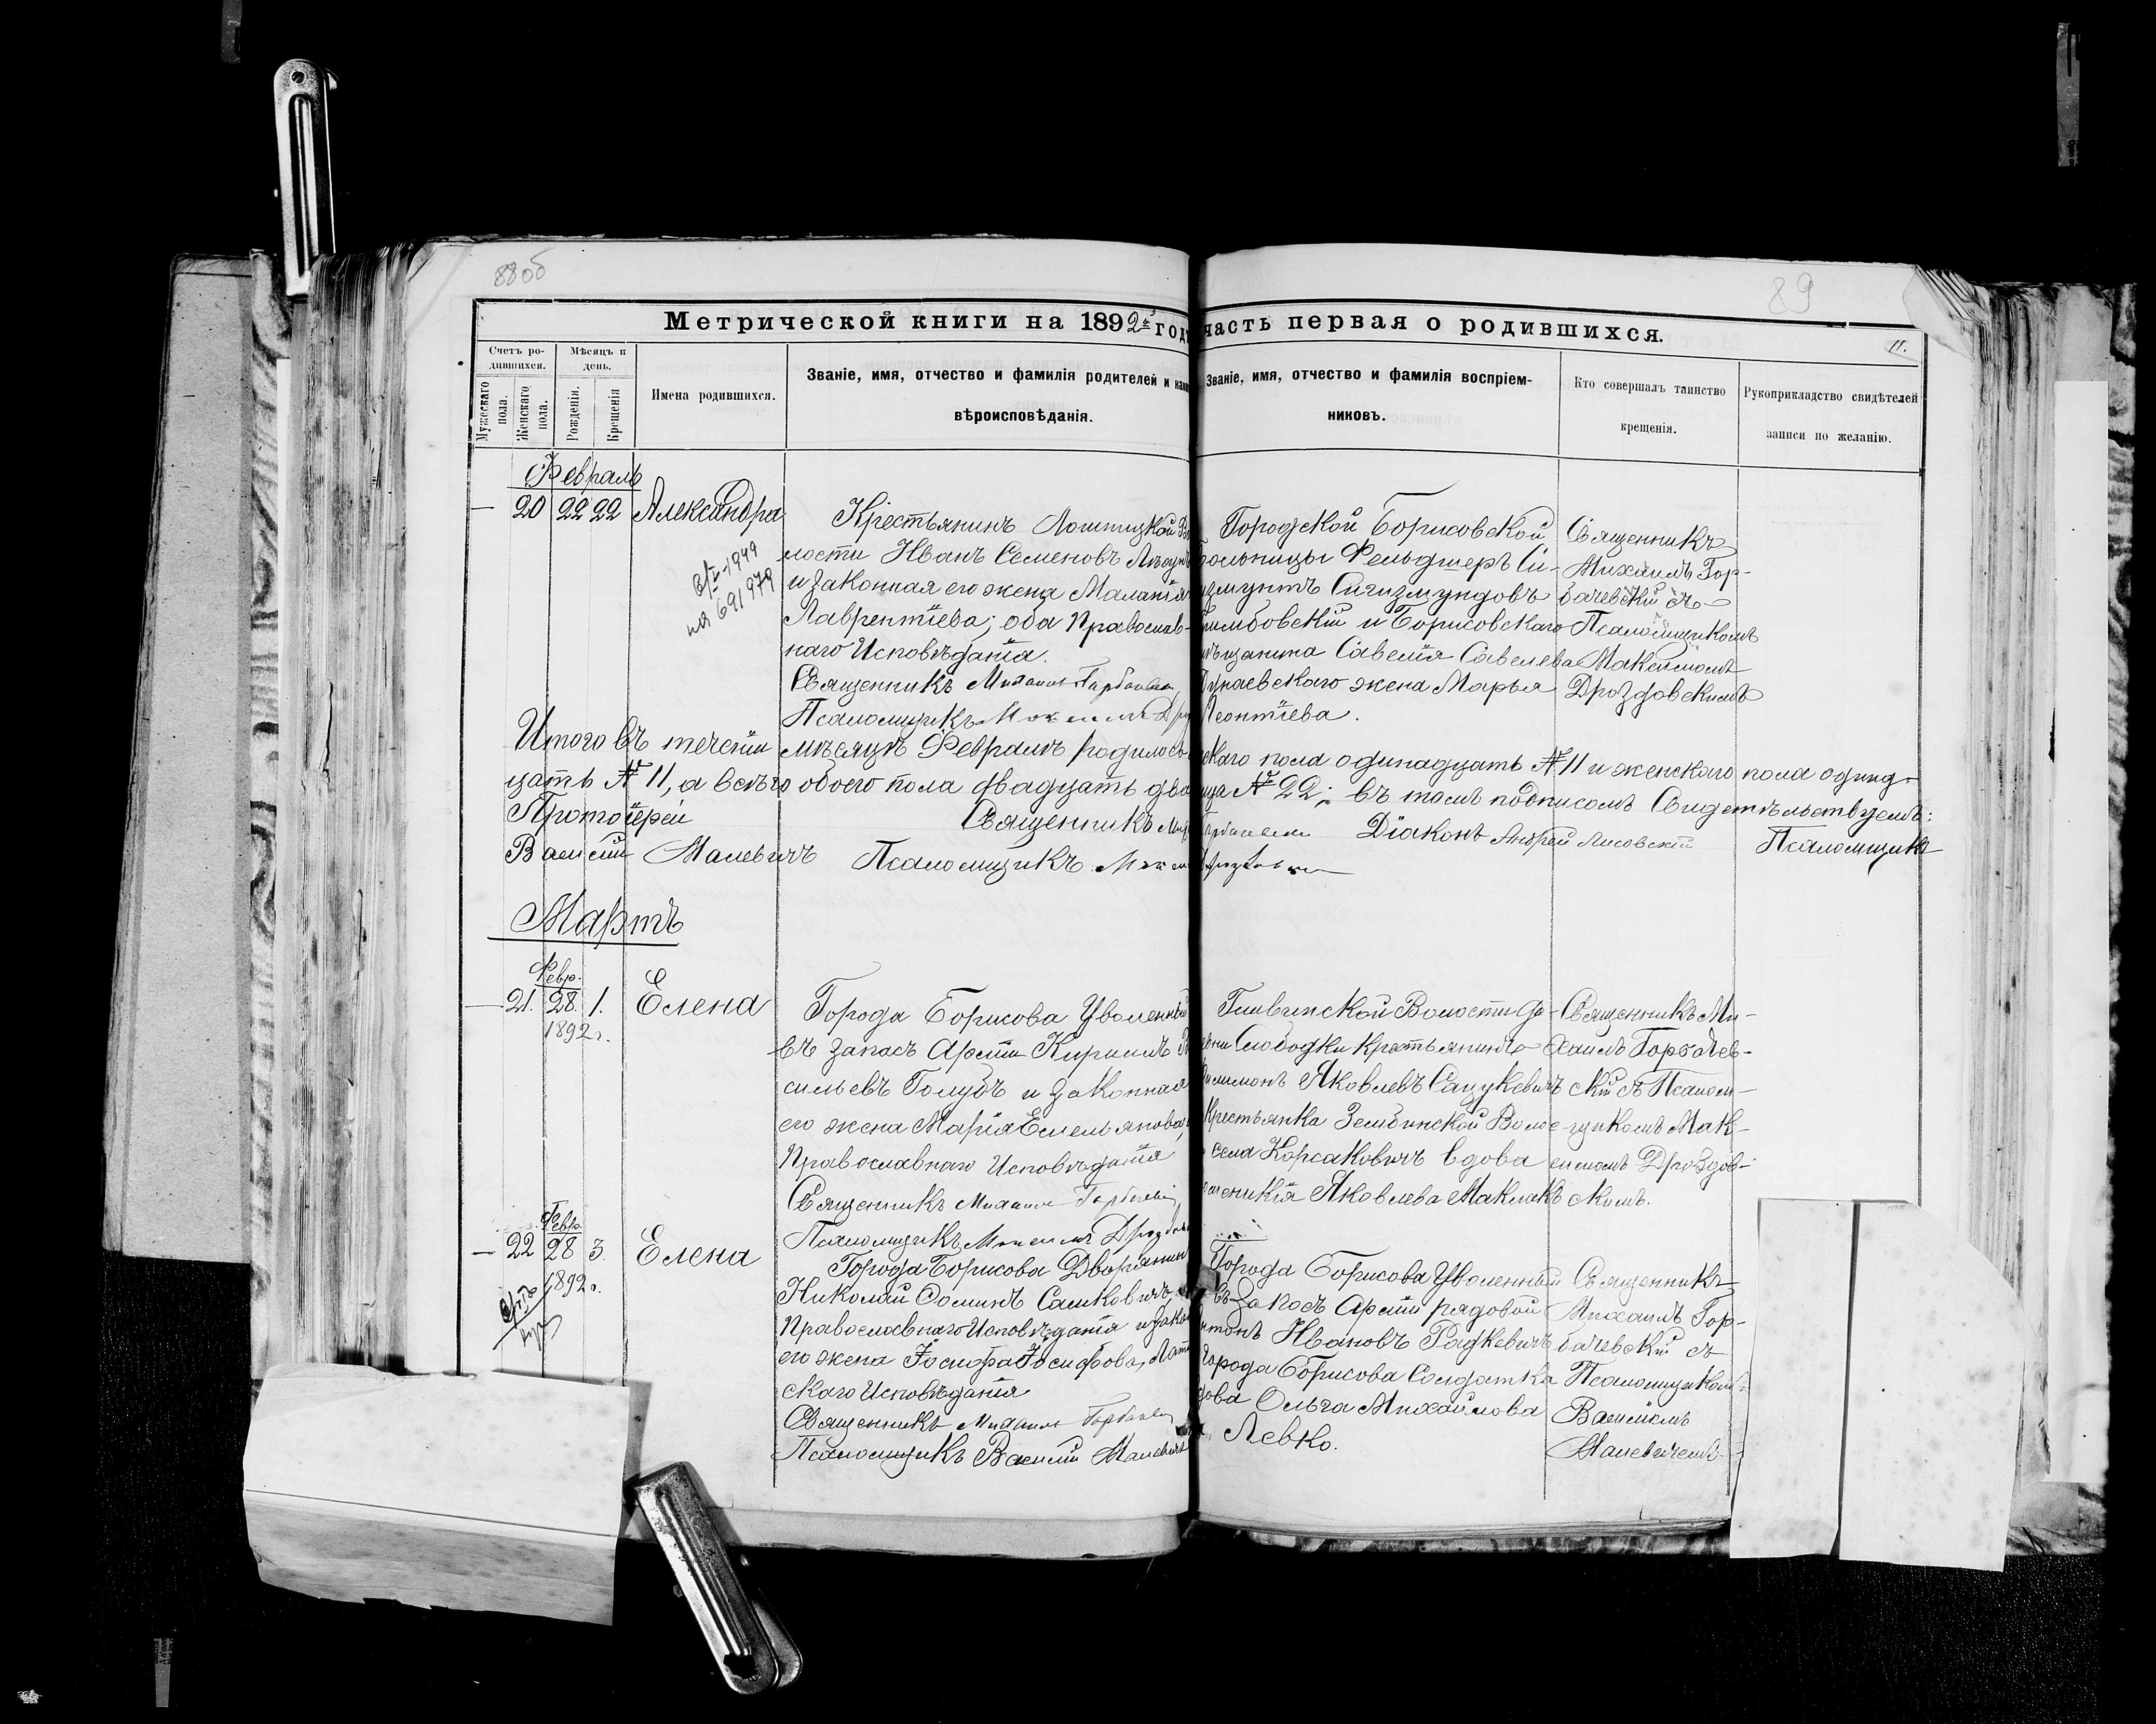 88об
89
Метрической книги на 1892й годъ часть первая о родившихся.
11.
Счетъ ро-
дившихся.
Мѣсяцъ и
день.
Мужескаго
пола.
Женскаго
пола.
Рожденія.
Крещенія
Имена родившихся.
Званіе, имя, отчество и фамилія родителей и
вѣроисповѣданія.
Званіе, имя, отчество и фамилія воспріем-
никовъ.
Кто совершалъ таинство
крещенія.
Рукоприкладство свидѣтелей
записи по желанію.
Февраль
— 20 22 22 Александра
1949
691979
Крестьянинъ Лошницкой Во
лости Иванъ Семеновъ
и законная его жена Маланія
Лаврентіева; оба Православ-
наго Исповѣданія.
Священникъ Михаилъ Горбачевскій
Псаломщикъ Максимъ
Городской Борисовской
больницы Фельдшеръ Си-
гизмунтъ Сигизмундовъ
и Борисовскаго
мѣщанина Савелія Савельева
Дунаевскаго жена Марья
Леонтіева.
Священникъ
Михаилъ Гор-
бачевскій съ
Псаломщикомъ
Максимомъ
Дроздовскимъ
Итого въ теченіи мѣсяцѣ Февралѣ родилось мужескаго пола одинадцать № 11 и женскаго пола одинад-
цать № 11, а всего обоего пола двадцать два лица № 22; въ томъ подписомъ Свидѣтельствуемъ:
Протоіерей Священникъ Горбачевскій Діаконъ Андрей Лисовскій Псаломщикъ
Василій Малевичъ Псаломщикъ Максимъ Дроздовскій
Мартъ
Февр.
— 21. 28. 1. Елена
1892г.
Города Борисова Уволенный
въ запасъ Арміи Кирилъ Ва
сильевъ Голубъ и законная
его жена Марія Емельянова,
Православнаго Исповѣданія
Священникъ Михаилъ Горбачевскій
Псаломщикъ Максимъ Дроздов
Гливинской Волости де-
ревни Слободки крестьянинъ
Филимонъ Яковлевъ Сацукевичъ
Крестьянка Зембинской Волос
села Корсаковичъ вдова
Яковлева Маклакъ
Священникъ Ми-
хаилъ Горбачев-
скій съ Псалом-
щикомъ Мак-
симомъ Дроздов-
скимъ.
Февр.
— 22 28 3. Елена
1892г.
Города Борисова Дворянинъ
Николай Ооминъ Сашковичъ
Православнаго Исповѣданія и закон
его жена Іосифа Іосифова, Латин
скаго Исповѣданія
Священникъ Михаилъ Горбачевскій
Псаломщикъ Василій Малевичъ
Города Борисова Уволенный
въ Запасъ Арміи рядовой
Антонъ Ивановъ Радкевичъ
города Борисова Солдатка
вдова Ольга Михайлова
Левко.
Священникъ
Михаилъ Гор-
бачевскій съ
Псаломщикомъ
Василіемъ
Малевичемъ